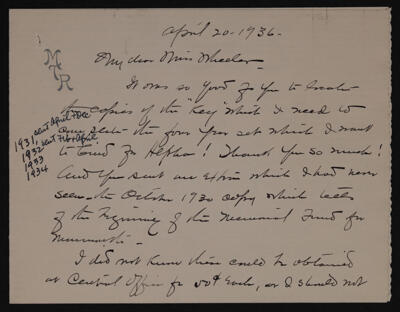 April 20-1936-
M
T
R
My dear Miss Wheeler-
It was so good of you to locate
the copies of the "Key" which I need to
the four year set which I want
to bind for Alpha! Thank you so much!
And you sent me extra which I had never
seen- the October 1930 copy which tells
of the beginning of the Memorial Fund for
Monmouth-
I did not know these could be obtained
at Central Office for 50¢ each, or I should not
1931, sent April
1932 sent Feb April
1933
1934